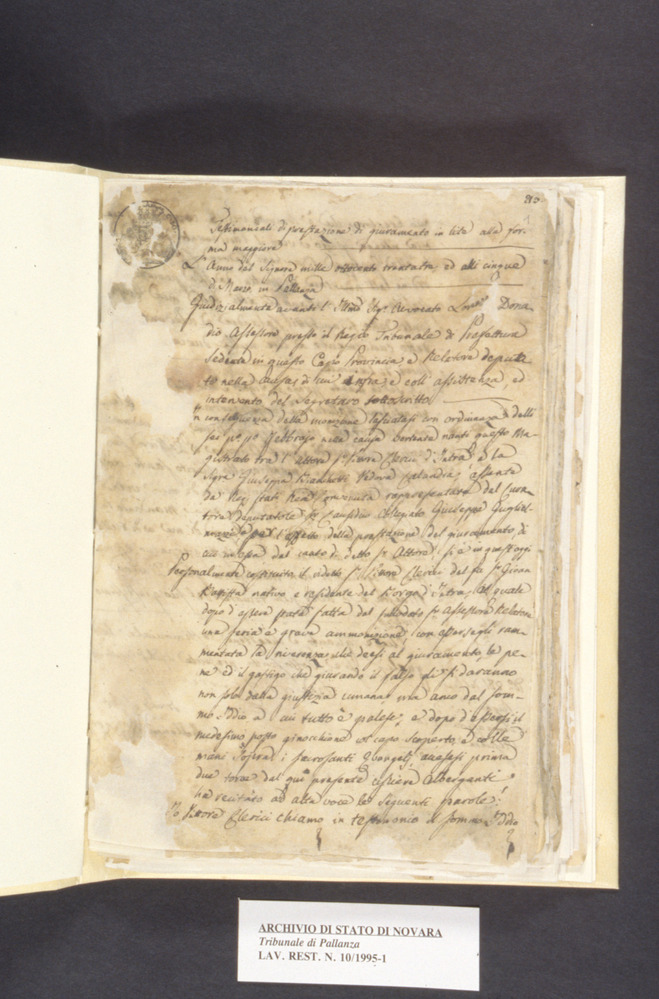 210
1
Testimoniali di prestazione di giuramento in lite alla for-
ma maggiore
L'Anno del Signore mille ottocento trentatre, ed alli cinque
di Marzo in Pallanza
Giudizialmente avanti l' Avvocato Dona
dio Assessore presso il Regio Tribunale di Prefettura
sedente in questo Capo Provincia e Relatore deputa-
to nella causa di cui infra, e coll' assistenza, ed
intervento del Segretaro sottoscritto
In conseguenza della rilasciatasi con ordinanza delli
febbrajo nella causa vertente nanti questo Ma-
gistrato tra l' attore Clerici d' Intra e la
Sigra Giuseppa Bianchetti Vedova assente
da Regi Stati rappresentata dal Cura-
tore deputatole Causidico Collegiato Giuseppe Gugliel-
per l' effetto della prestazione del giuramento, di
cui in essa dal canto di detto Sr Attore, si è in quest' oggi
Personalmente costituito il Clerici del fu Sr Gioan
Batista nativo e residente del Borgo d' Intra, al quale
dopo d' essere stata fatta dal sullodato Sr Assessore Relatore
una seria e grave ammonizione, con essersegli ram-
mentata la riverenza che devesi al giuramento, le pe-
ne ed il gastigo che giurando il falso gli si daranno
non solo dalla giustizia umana, ma anco dal som-
mo Iddio a cui tutto è palese, e dopo d' essersi il
medesimo posto ginocchione col capo scoperto, e colle
mani sopra i sacrosanti Evangelj, accesesi prima
due torce dal qui presente usciere Alberganti
ha recitato ad alta voce le seguenti parole:
Io Clerici chiamo in testimonio il sommo Iddio
ARCHIVIO DI STATO DI NOVARA
Tribunale di Pallanza
LAV. REST. N. 10/1995-1